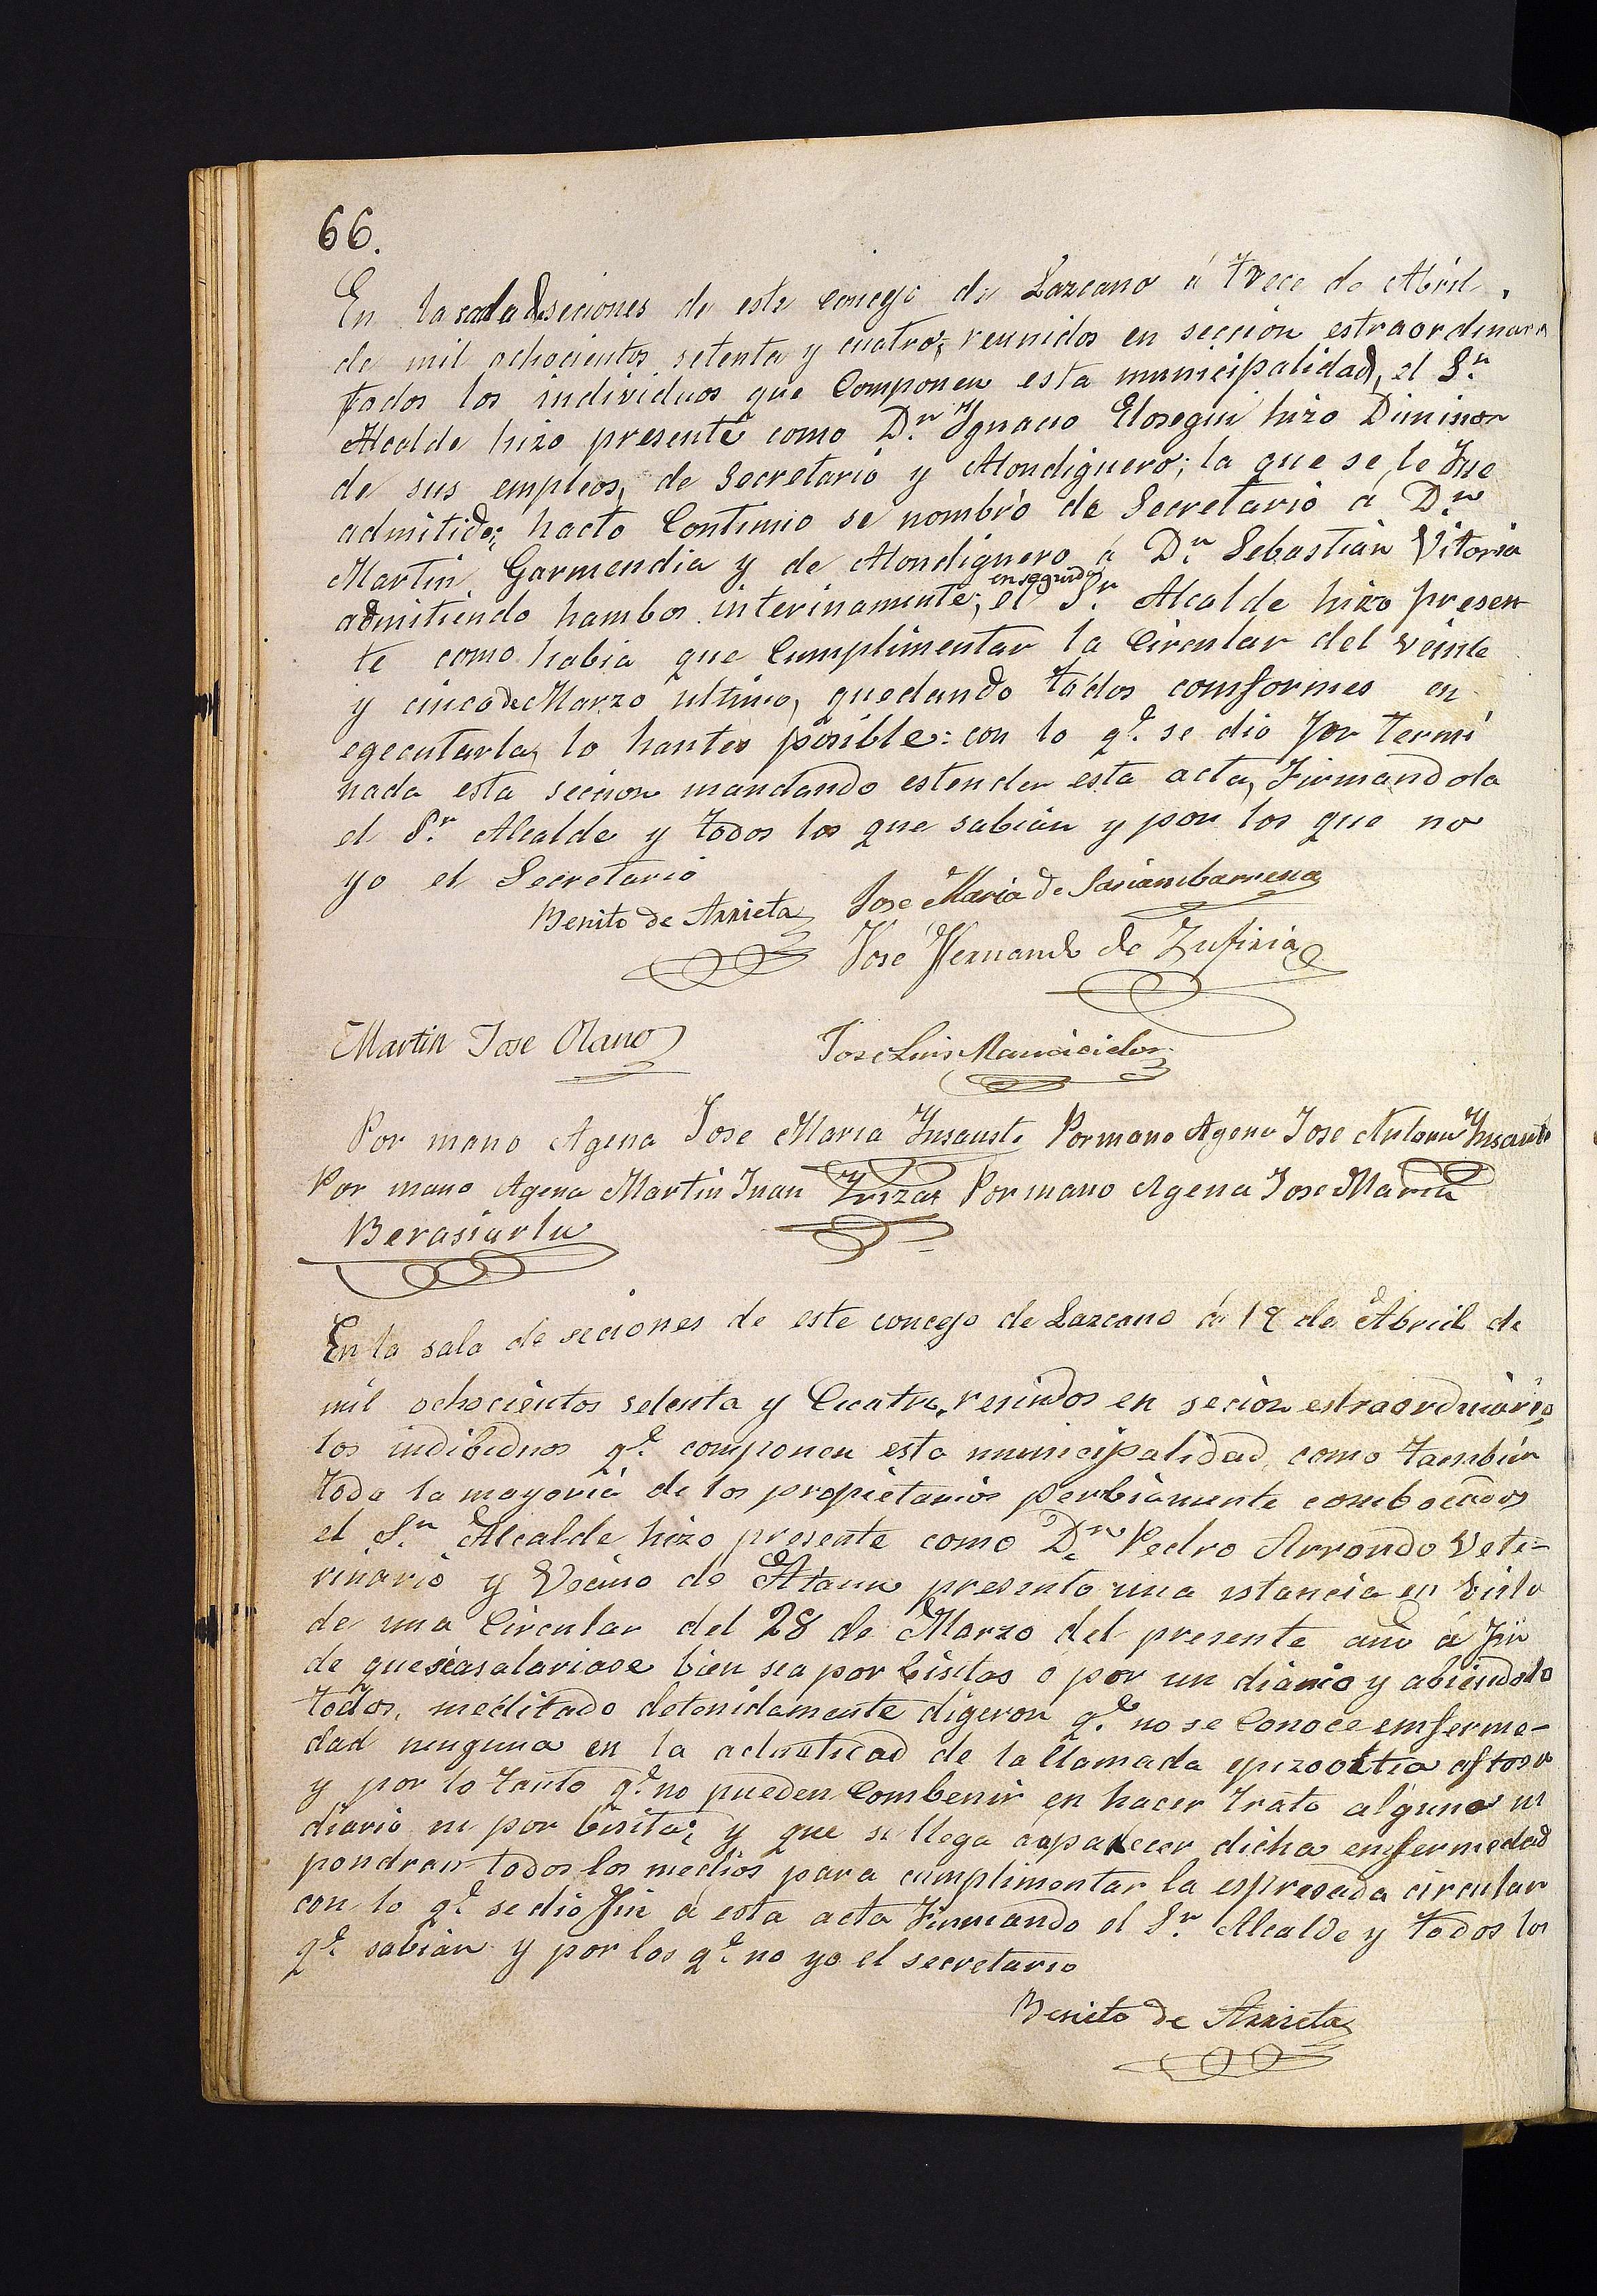 66.
En la sala de seciones de este concejo de Lazcano á trece de Abril
de mil ochocientos setenta y cuatro; reunidos en seccion estraordinara
todos los individuos que Componen esta municipalidad, el Sr.
Alcalde hizo presente como Dn. Ygnacio Elosegui hizo Dimision
de sus empleos, de Secretario y Alondiguero; la que se le fue
admitido; hacto Continuo se nombró de Secretario á Dn.
Martin Garmendia y de Alondiguero á Dn. Sebastian Vitoria
admitiendo hambos interinamente; en seguida el Sr. Alcalde hizo presen
te como habia que Cumplimentar la Circular del veinte
y cinco de Marzo ultimo, quedando todos comformes en
egecutarla, lo hantes posible: con lo qe. se dio por termi
nada esta seccion mandando estender esta acta, Firmandola
el Sr. Alcalde y todos los que sabian y por los que no
yo el Secretario
Benito de Arrieta Jose Maria de Sasiambarrena
Jose Fernando de Zufiria
Martin Jose Olano Jose Luis Mancicidor
Por mano Agena Jose Maria Ynsausti Por mano Agena Jose Antonio Ynsausti
Por mano Agena Martin Juan Yrizar Por mano Agena Jose Maria
Berasiartu
En la sala de seciones de este concejo de Lazcano á 19 de Abril de
mil ochocientos setenta y Cuatro, reunidos en secion estraordinaria
los indibiduos qe. componen esta municipalidad, como tambien
toda la mayoria de los propietarios perbiamente combocados
el Sr. Alcalde hizo presente como Dn. Pedro Arrondo Vete-
rinario y Vecino de Ataun presento una istancia en birtu
de una Circular del 28 de Marzo del presente año á fin
de que se asalariase bien sea por bisitas o por un diario y abiendolo
todos, meditado detenidamente digeron qe. no se Conoce emferme-
dad ninguna en la actualidad de la llamada epizootia aftosa
y por lo tanto qe. no pueden Combenir en hacer trato alguno ni
diario ni por bisita; y que si llega á aparecer dicha emfermedad
pondran todos los medios para cumplimentar la espresada circular
con lo qe. se dio fin á esta acta Firmando el Sr. Alcalde y todos los
qe. sabian y por los qe. no yo el secretario
Benito de Arrieta